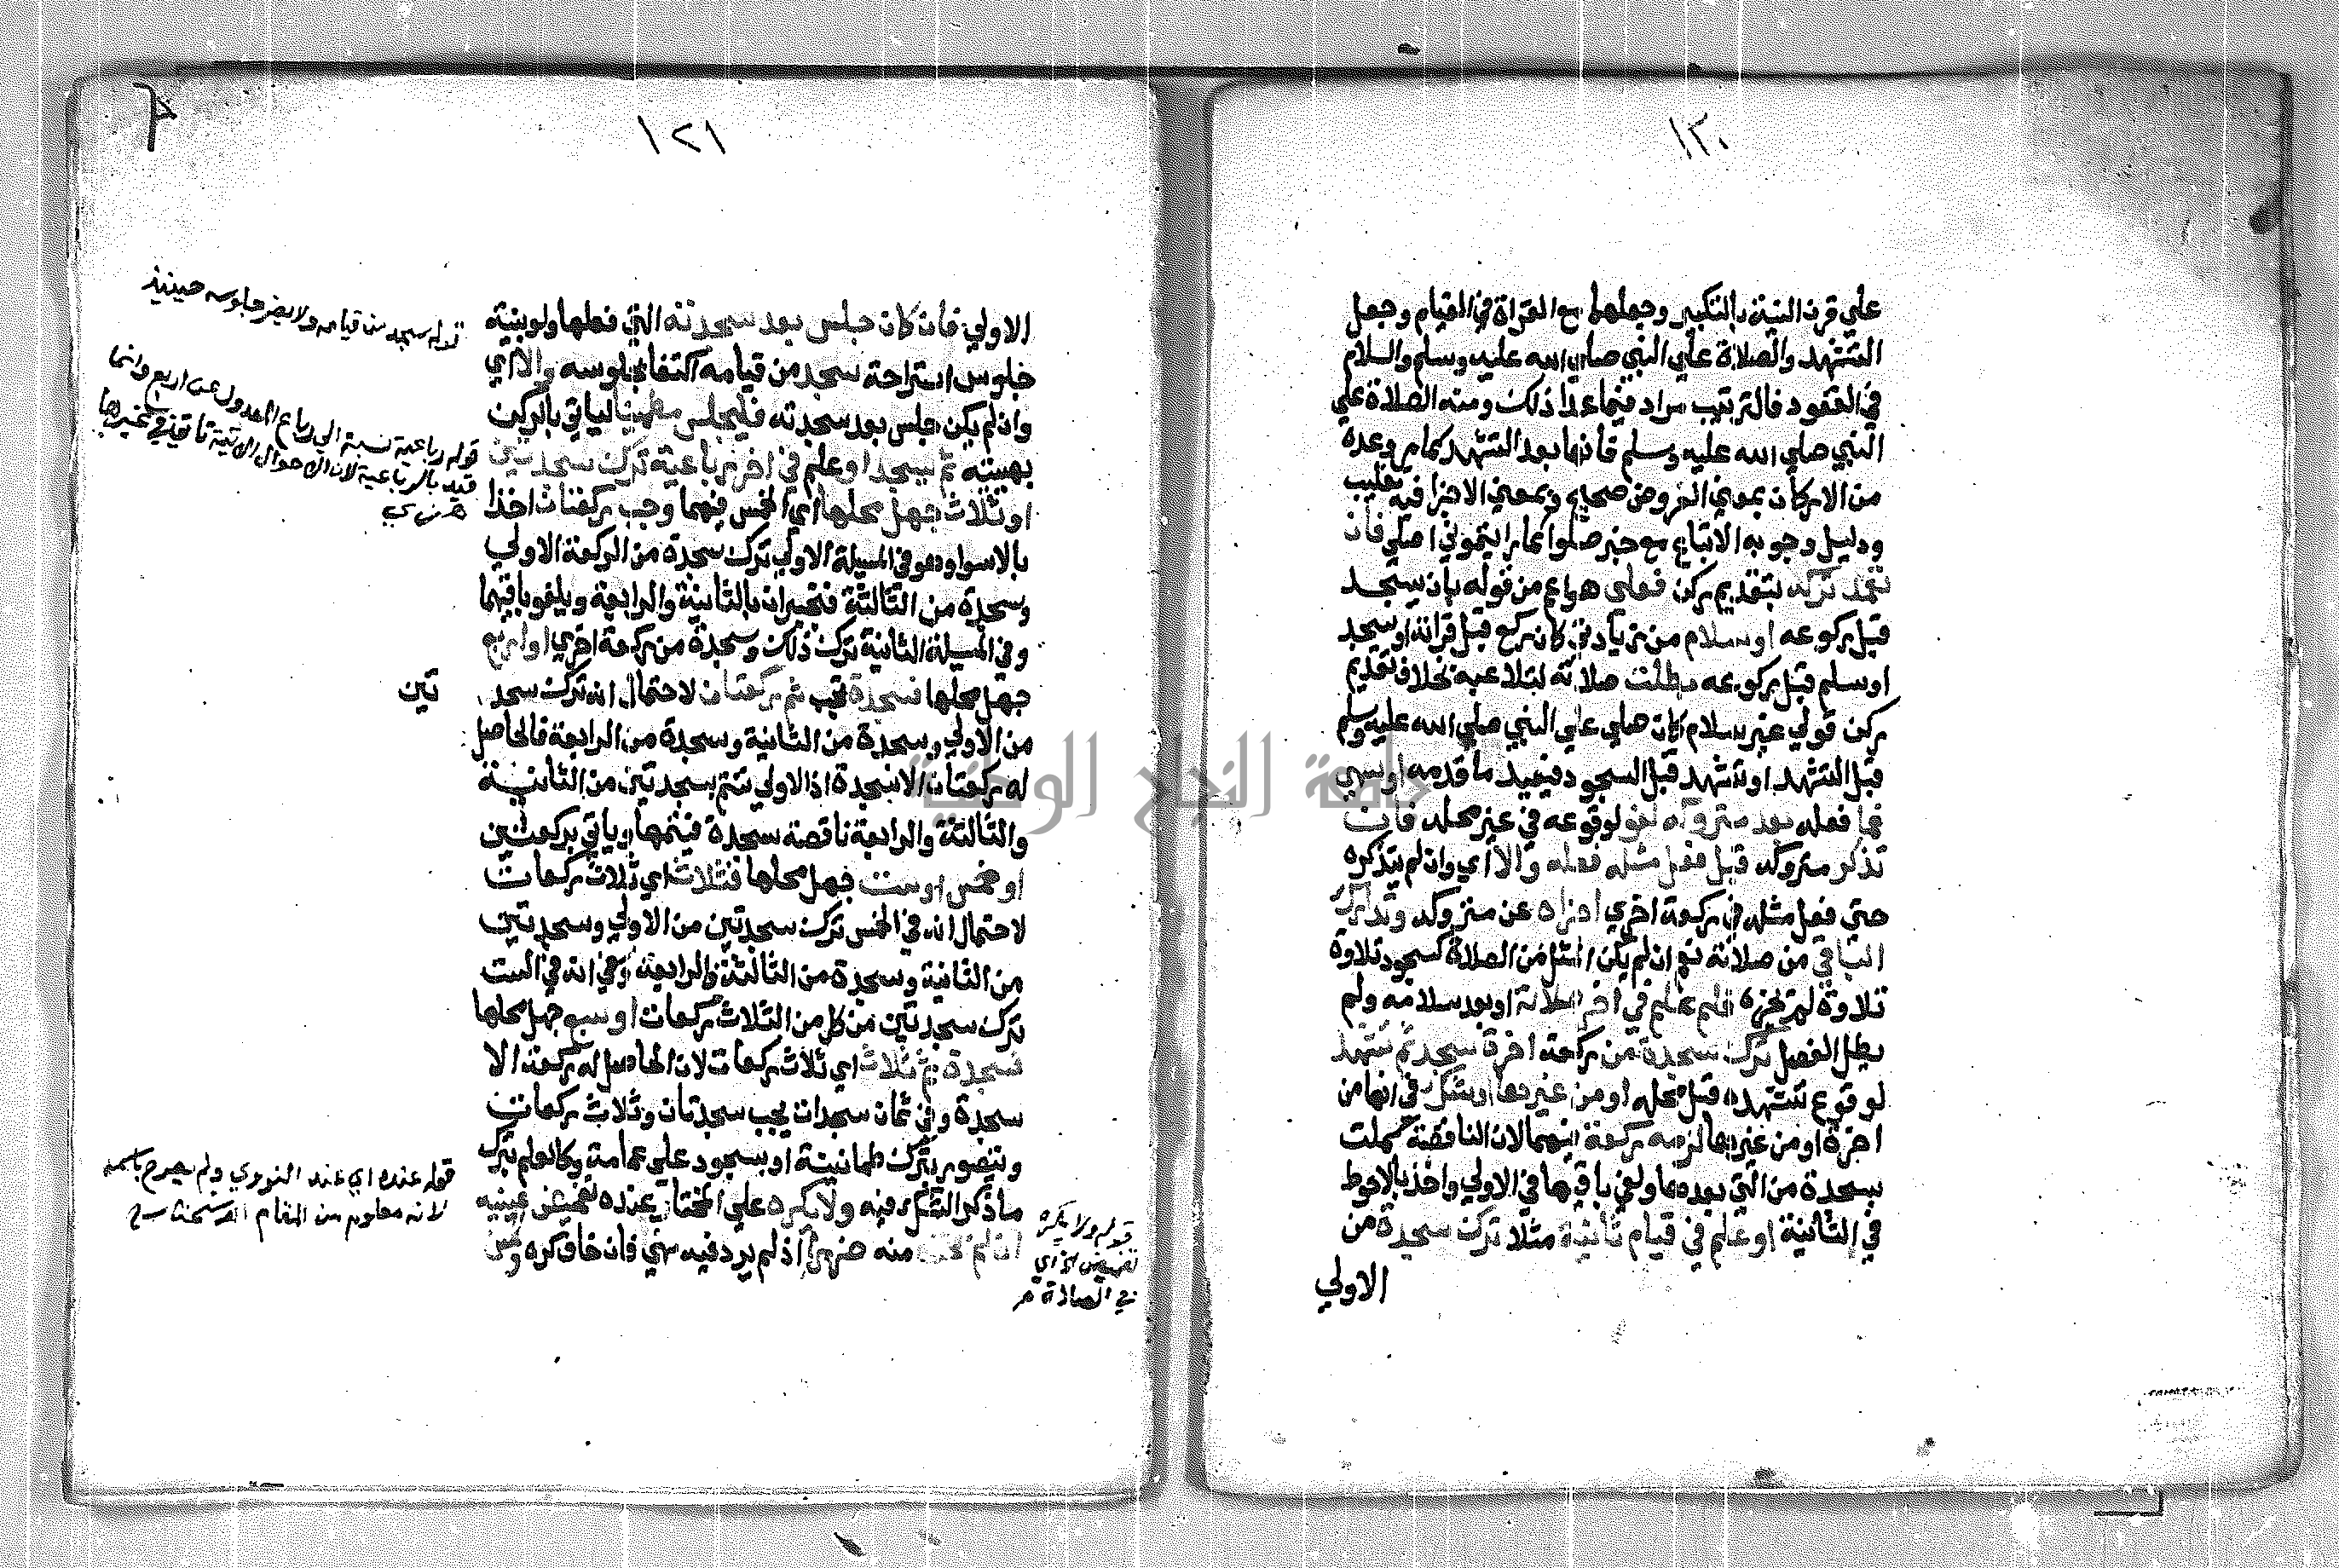 ١٣٠
علي قرن النية بالتكبير وجعلها مع القراة في القيام وجعل
التشهد والصلاة علي النبي صلي الله عليه وسلم والسلام
في القعود فالترتيب مراد فيما عدا ذلك ومنه الصلاة علي
النبي صلي الله عليه وسلم فانها بعد التشهد كما مر وعده
من الاركان بمعني الفروض صحيح وبمعني الاجزا فيه تغليب
ودليل وجوبه الاتباع مع خبر صلوا كما رايتموني اصلي فان
تعمد تركه بتقديم ركن فعلي هو اعم من قوله بان سجد
قبل ركوعه او سلام من زيادتي كان ركع قبل قراته او سجد
او سلم قبل ركوعه بطلت صلاته لتلاعبه بخلاف تقديم
ركن قولي غير سلام كان صلي علي النبي صلي الله عليه وسلم
قبل التشهد او تشهد قبل السجود فيعيد ما قدمه او سهي
فما فعله بعد متروكه لغو لوقوعه في غير محله فان
تذكر متروكه قبل فعل مثله فعله والا اي وان لم يتذكره
حتي فعل مثله في ركعة اخري اجزاه عن متروكه وتدارك
الباقي من صلاته نعم ان لم يكن المثل من الصلاة كسجود تلاوة
تلاوة لم تجزه فلو علم في اخر صلاته او بعد سلامه ولم
يطل الفصل ترك سجدة من ركعة اخرة سجد ثم تشهد
لوقوع تشهده قبل محله او من غيرها او شك في انها من
اخرة او من غيرها لزمه ركعة فيهما لان الناقصة كملت
بسجدة من التي بعدها ولغي باقيها في الاولي واخذ بالاحوط
في الثانية او علم في قيام ثانية مثلا ترك سجدة من
الاولي
١٢١
الاولي فان كان جلس بعد سجدته التي فعلها ولو بنية
جلوس استراحة سجد من قيامه اكتفا بجلوسه والا اي
وان لم يكن جلس بعد سجدته فليجلس مطمينا لياتي بالركن
بهيئته ثم يسجد او علم في اخر رباعية ترك سجدتين
او ثلاث جهل محلها اي الخمس فيهما وجب ركعتان اخذا
بالاسوا وهو في المسيلة الاولي ترك سجدة من الركعة الاولي
وسجدة من الثالثة فتجبران بالثانية والرابعة ويلغو باقيهما
وفي المسيلة الثانية ترك ذلك وسجدة من ركعة اخري او اربع
جهل محلها فسجدة تجب ثم ركعتان لاحتمال انه ترك سجد
تين
من الاولي وسجدة من الثانية وسجدة من الرابعة فالحاصل
له ركعتان الا سجدة اذ الاولي تتم بسجدتين من الثانية
والثالثة والرابعة ناقصة سجدة فيتمها وياتي بركعتين
او خمس او ست جهل محلها فثلاث اي ثلاث ركعات
لاحتمال انه في الخمس ترك سجدتين من الاولي وسجدتين
من الثانية وسجدة من الثالثة والرابعة وفي انه في الست
ترك سجدتين من كل من الثلاث ركعات او سبع جهل محلها
فسجدة ثم ثلاث اي ثلاث ركعات لان الحاصل له ركعة الا
سجدة وفي ثمان سجدات يجب سجدتان وثلاث ركعات
ويتصور بترك طمانينة او بسجود علي عمامة وكالعلم بترك
ما ذكر الشك فيه ولا يكره علي المختار عنده تغميض عينيه
ان لم يخف منه ضررا اذ لم يرد فيه نهي فان خاف كره وسن
قوله سجد من قيامه ولا يضر جلوسه حينيذ
قوله رباعية نسبة الي رباع المعدول عن اربع وانما
قيد بالرباعية لان الاحوال الاتية لا تاتي في غيرها
قوله عنده اي عند النووي ولم يصرح باسمه
لانه معلوم من المقام
قوله ولا يكره
تغميض اي
في الصلاة م ر
جامعة النجاح الوطنية